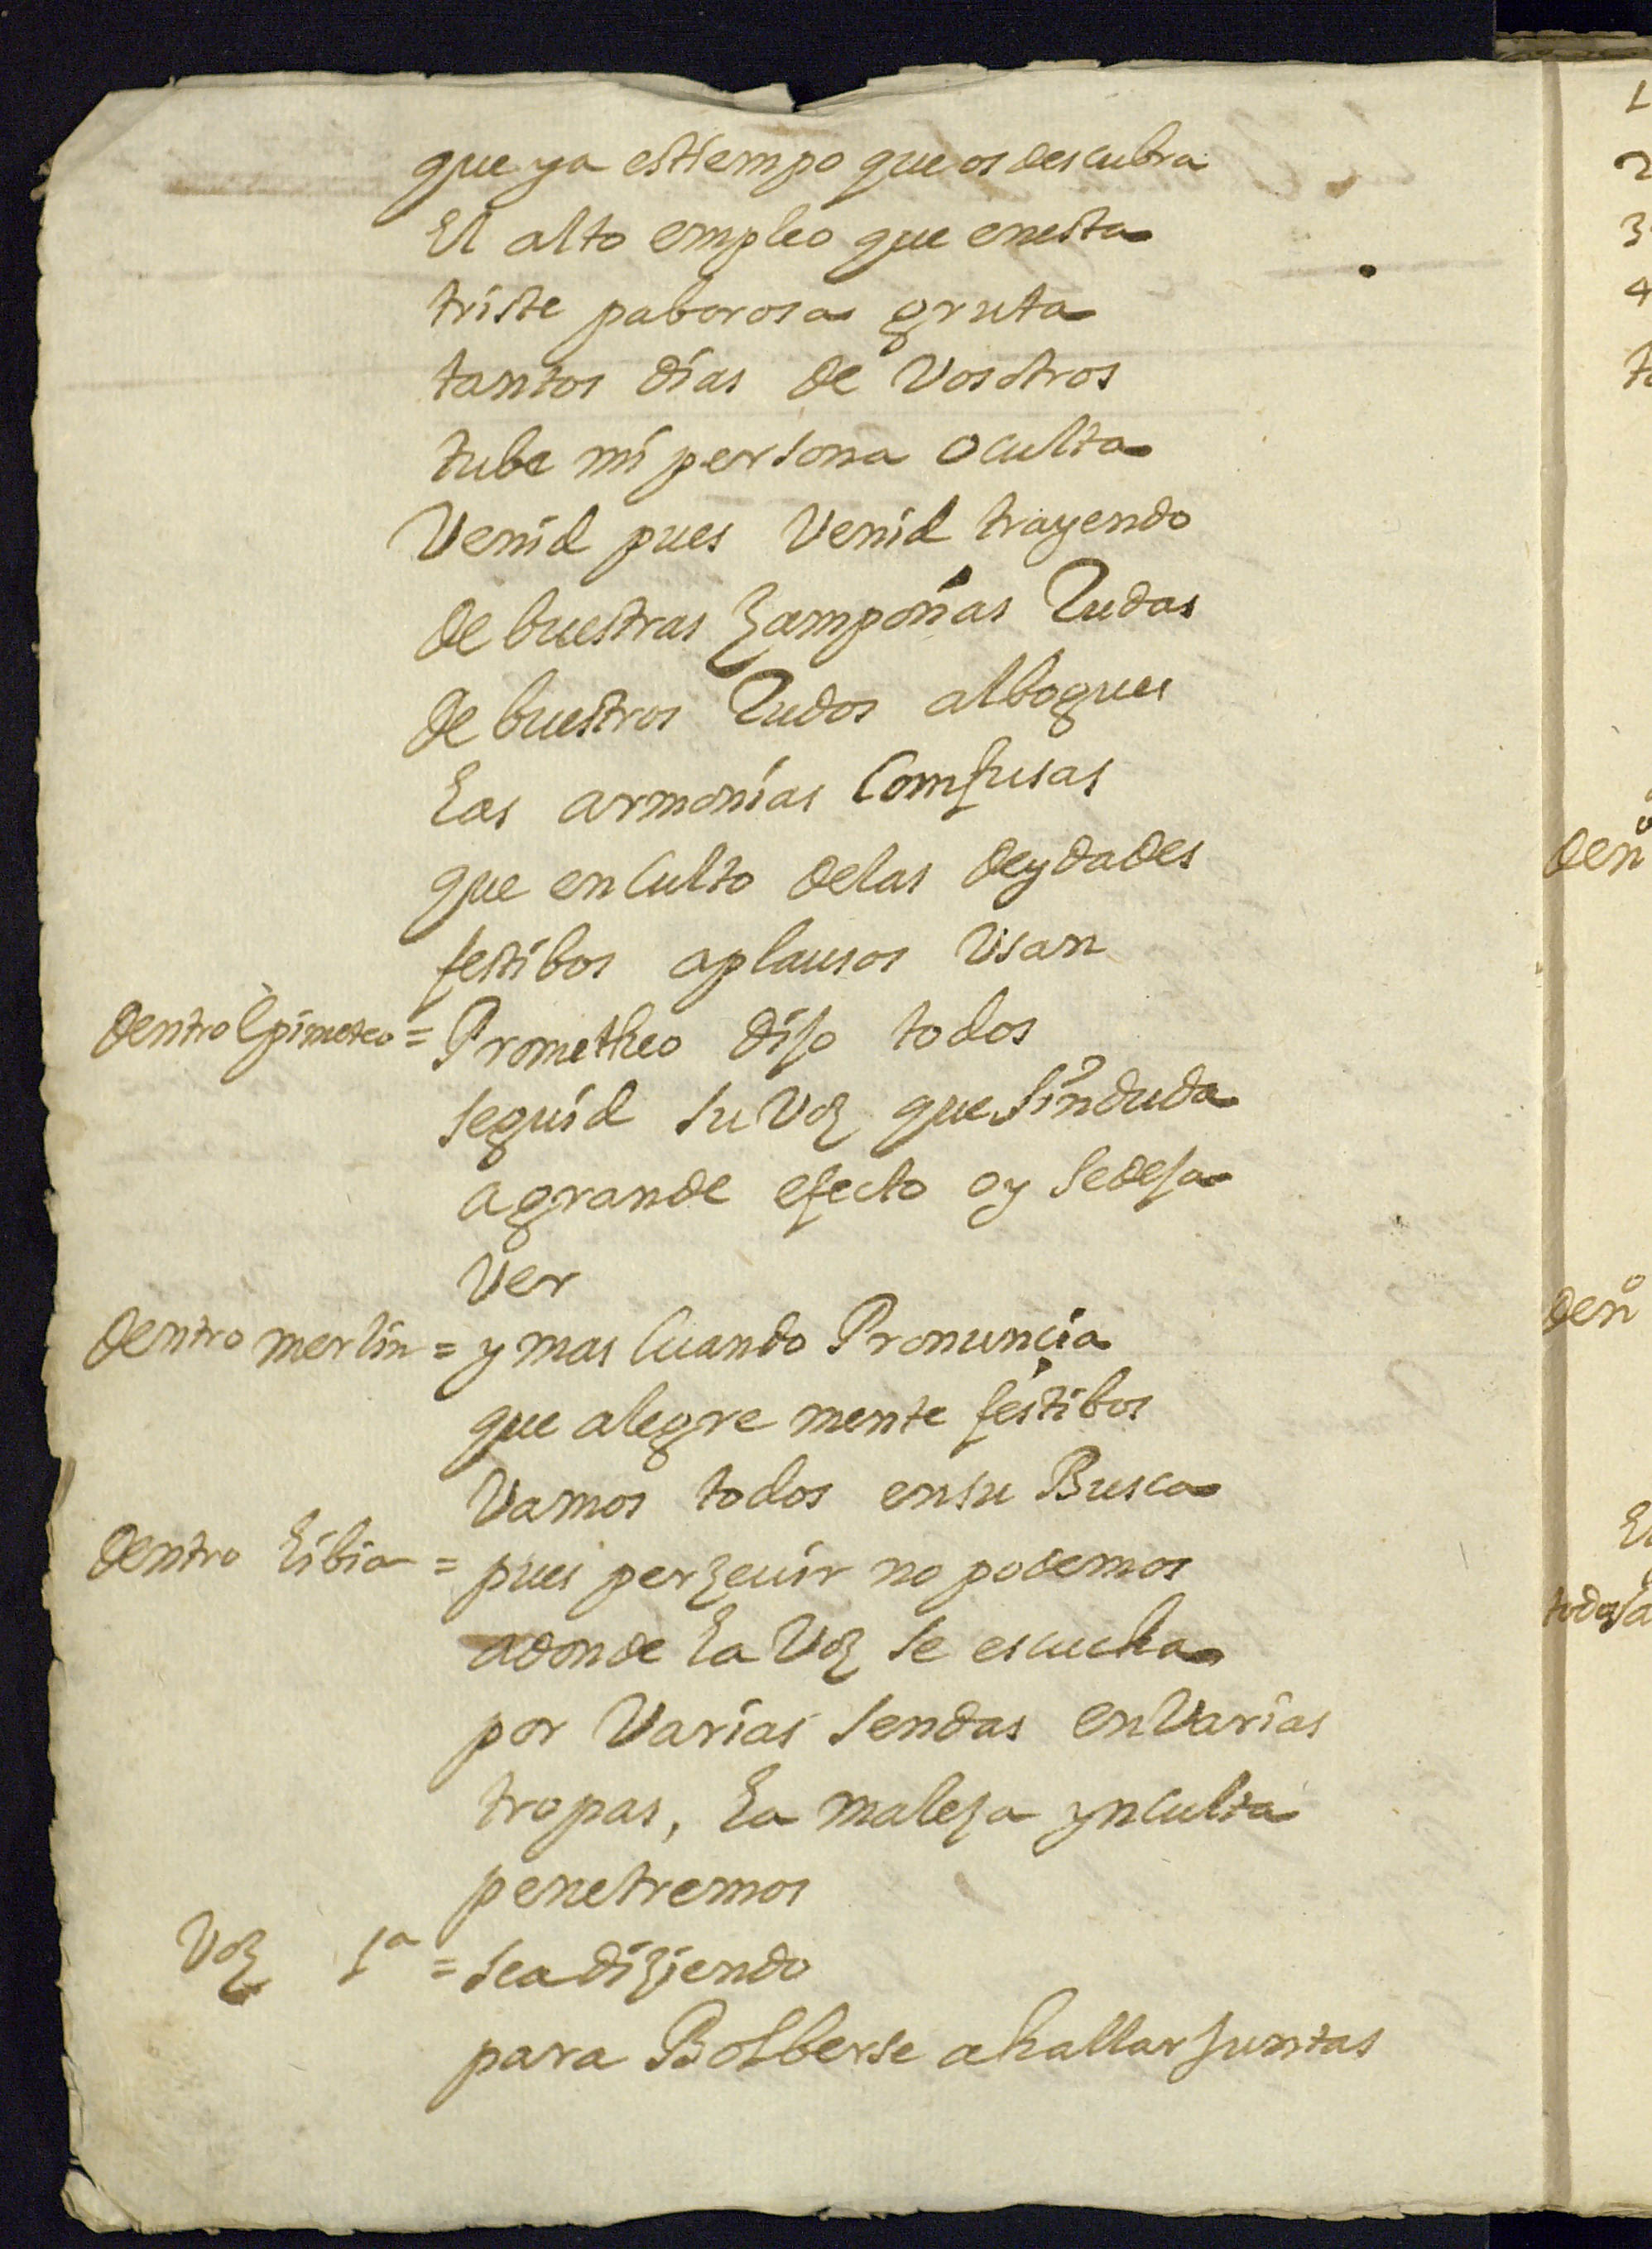 que ya estiempo que os descubra
El alto empleo que enesta
triste paborosa gruta
tantos dias de Vosotros
tube mi persona oculta
Venid pues Venid trayendo
de buestras Zampoñas Rudas
de buestros Rudos albogues
Las armonias Comfusas
que en Culto delas deydades
festibos aplausos Usan
dentro Epimeteo = Prometheo dijo todos
seguid su Voz que sin duda
a grande efecto oy se deja
Ver
dentro merlin = y mas Cuando Pronuncia
que alegre mente festibos
Vamos todos en su Busca
dentro Libia = pues perzeuir no podemos
adonde La Voz se escucha
por Varias sendas en Varias
tropas, La maleza ynculta
penetremos
Voz 1ª = sea diziendo
para Bolberse a hallar juntas
1
2
3
4
den^o
den^o
todos